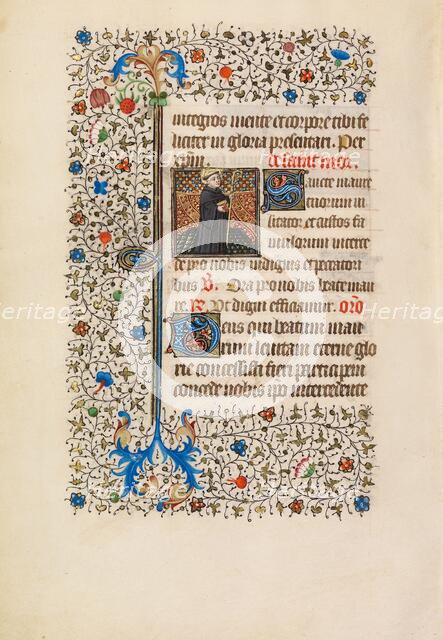 integros mente et corpore tibi fe
liciter in gloria presentari. Per
xpm. De saint mor.
Sancte maure
flicator, et custos fa
mulorum interce
de pro nobis indignis et peccatori
bus V. Ora pro nobis beate mau
re R. Vt digni efficiamur. Oro
Deus qui beatum mau
rum leuitam eterne glo
rie concessisti fieri participem
concede nobis ipo intercedente
Heritage
Heritage